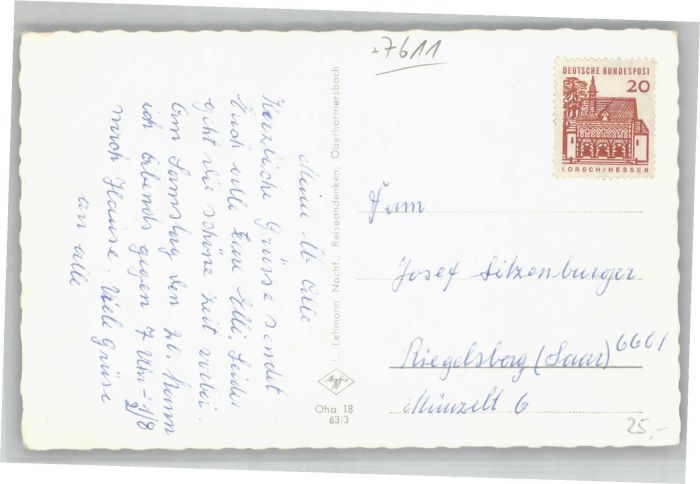 Meine Lb. Alle
Herzliche Grüsse sendet
Euch alle Eure Elli. Leider
geht die schöne Zeit vorbei.
Am Samstag den 26. komm
ich Abends gegen 7 Uhr - 1/2 8
nach Hause. Viele Grüse
an alle
L. Lehmann Nachf., Reiseandenken, Oberharmersbach
Oha 18
63/3
27611
DEUTSCHE BUNDESPOST
20
LORSCH/HESSEN
Fam
Josef Sitzenburger
Riegelsberg (Saar) 6601
6
25,-